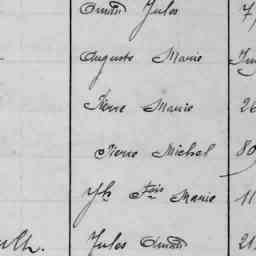 Aimé Jules 7
Auguste Marie
Pierre Marie 26
Pierre Michel 80
Jh Fçois Marie 11
Jules Aimé 21